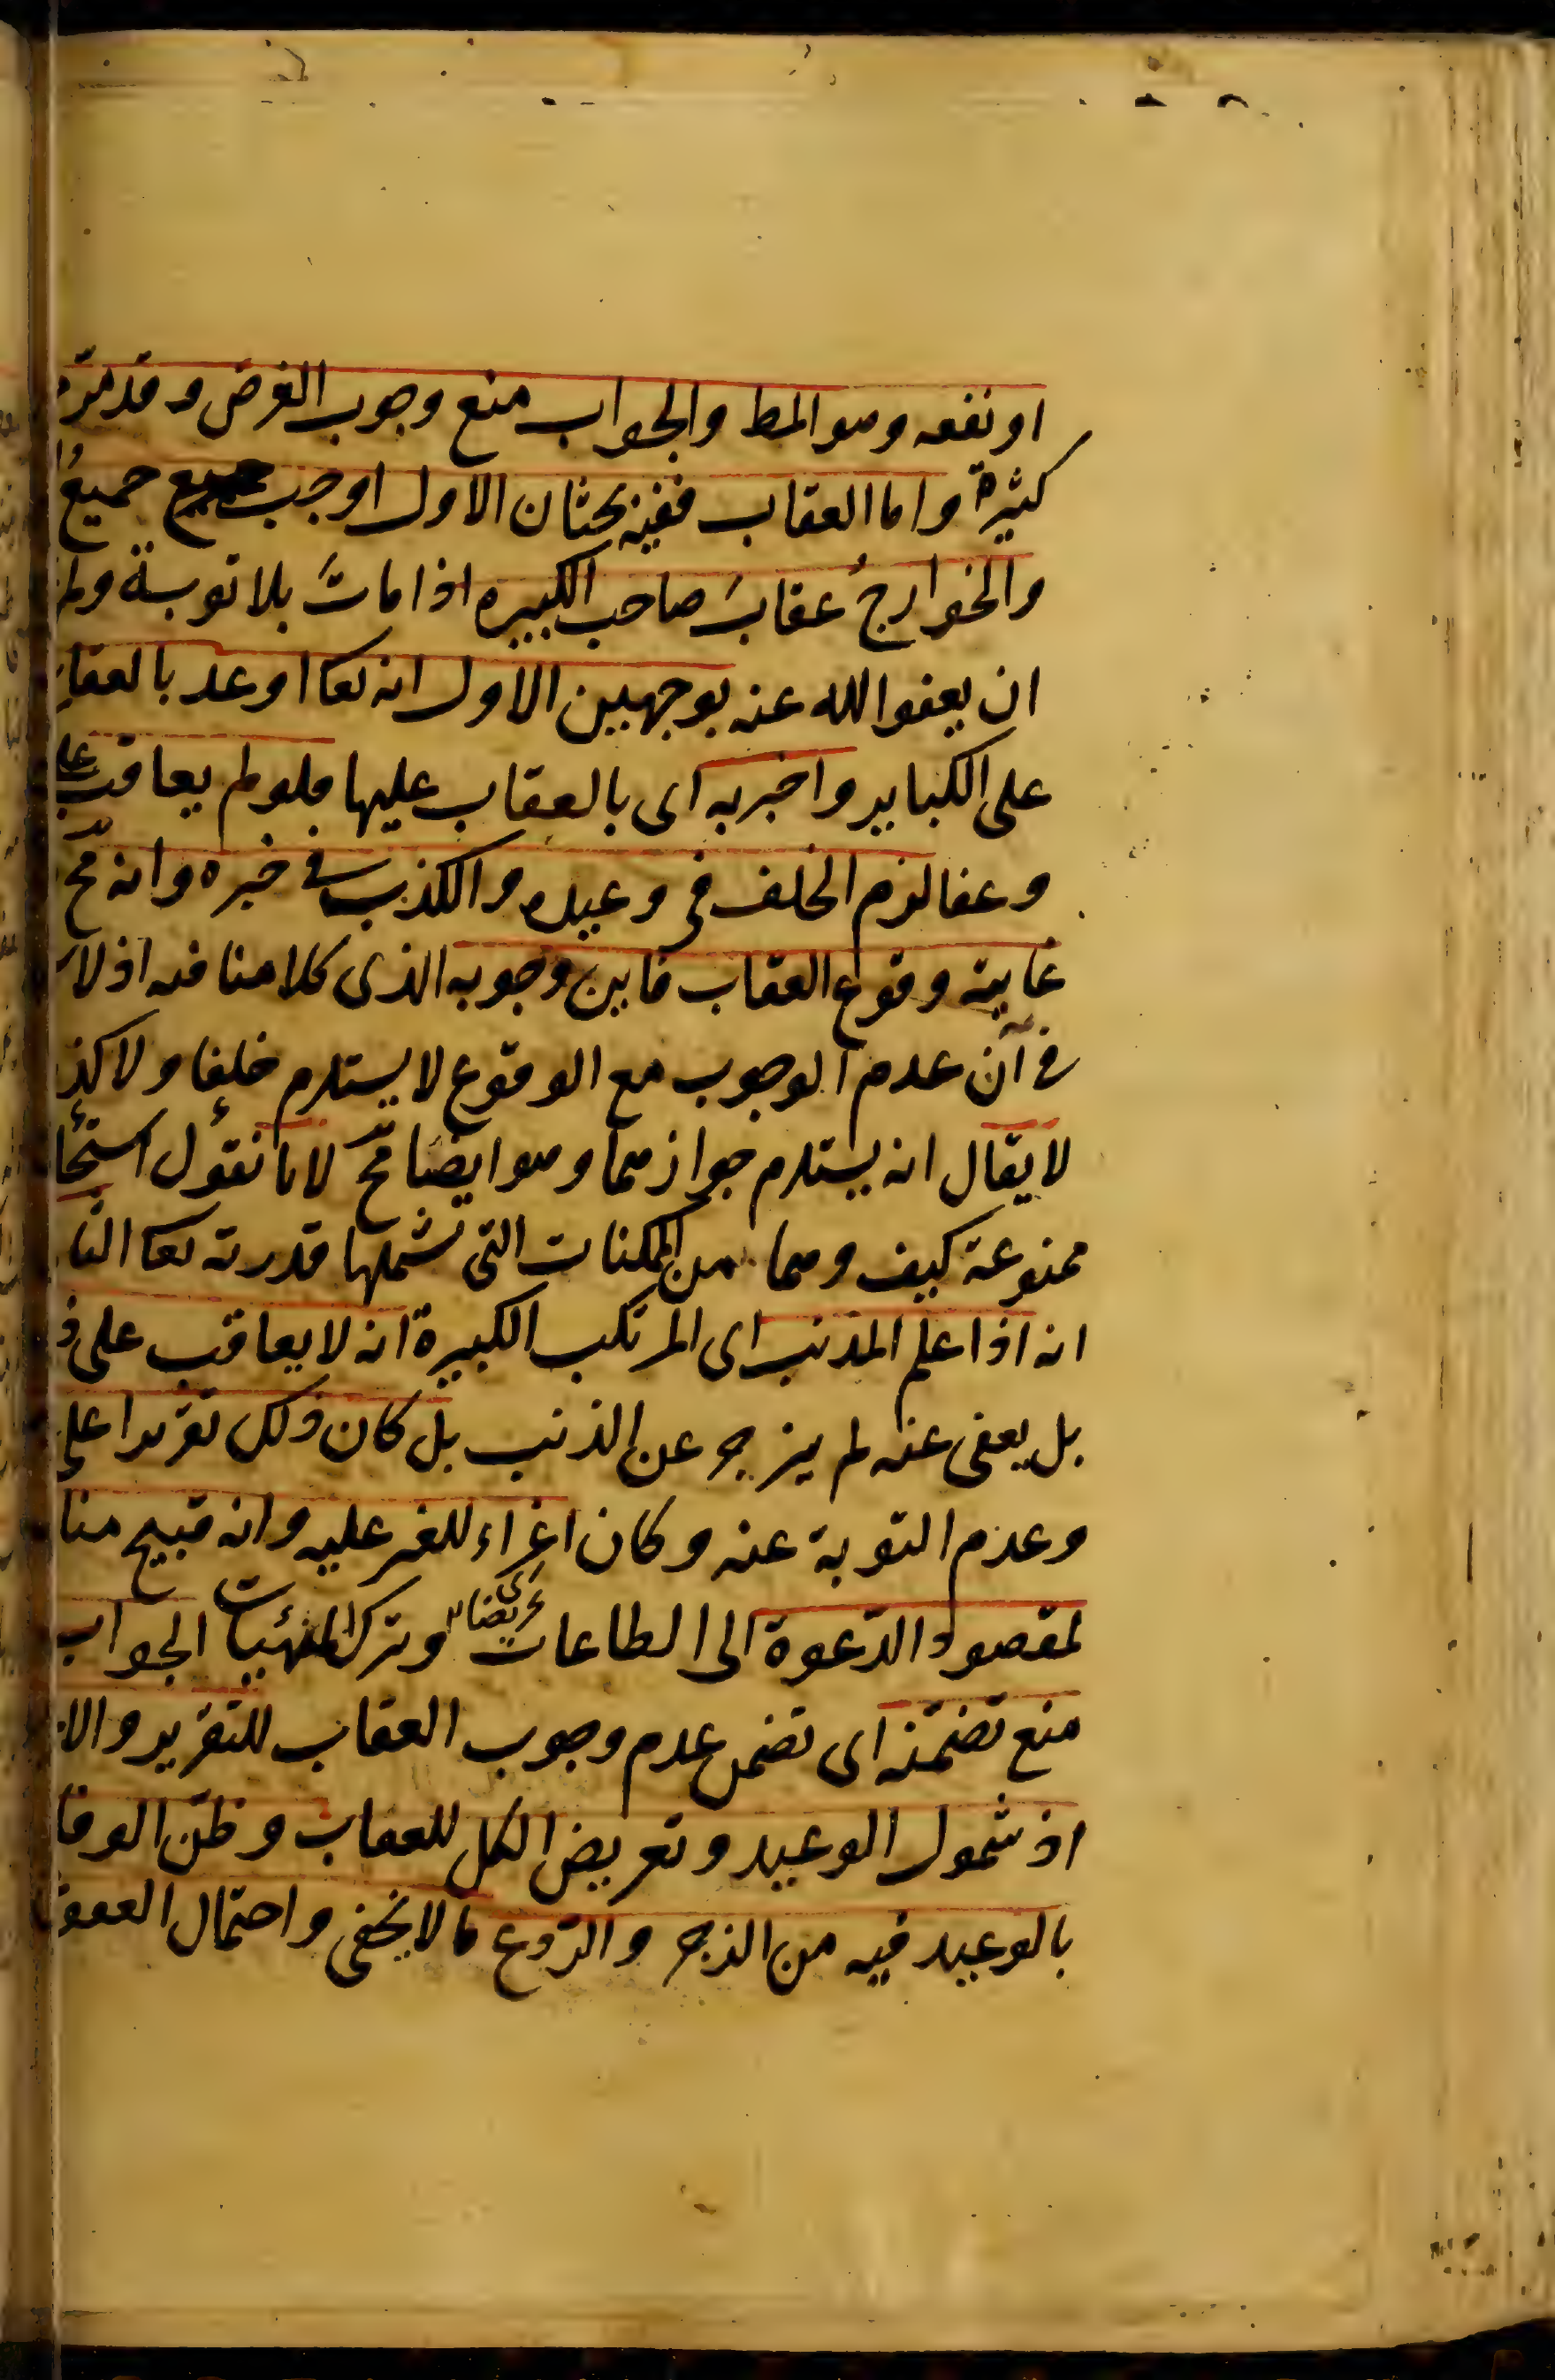 او نفعه وهو المط والجواب منع وجوب الغرض وقد مر
كثيرة واما العقاب ففيه بحثان الاول اوجب جميع
والخوارجُ عقابَ صاحب الكبيره اذا مات بلا توبة ولم
ان يعفو الله عنه بوجهين الاول انه تعا اوعد بالعقاب
على الكباير واخبر به اى بالعقاب عليها فلو لم يعاقب على
وعفا لزم الخلف فى وعيده والكذب فى خبره وانه مح
غايته وقوع العقاب فاين وجوبه الذى كلامنا فيه اذ لا
فى ان عدم الوجوب مع الوقوع لا يستلزم خلفا ولا كذ
لا يقال انه يستلزم جوازهما وهو ايضا مح لانا نقول استحا
ممنوعة كيف وهما من الممكنات التى تشملها قدرته تعا الثا
انه اذا علم المذنب اى المرتكب الكبيرة انه لا يعاقب على ذ
بل يعفى عنه لم ينزجر عن الذنب بل كان ذلك تقريرا على
وعدم التوبة عنه وكان اغراء للغير عليه وانه قبيح منا
لمقصود الدّعوة الى الطاعات وترك المنهيات الجواب
منع تضمّنه اى تضمن عدم وجوب العقاب للتقرير والا
اذ شمول الوعيد وتعريض الكل للعقاب وظنّ الوفا
بالوعيد فيه من الزجر والرّدع ما لا يخفى واحتمال العفو